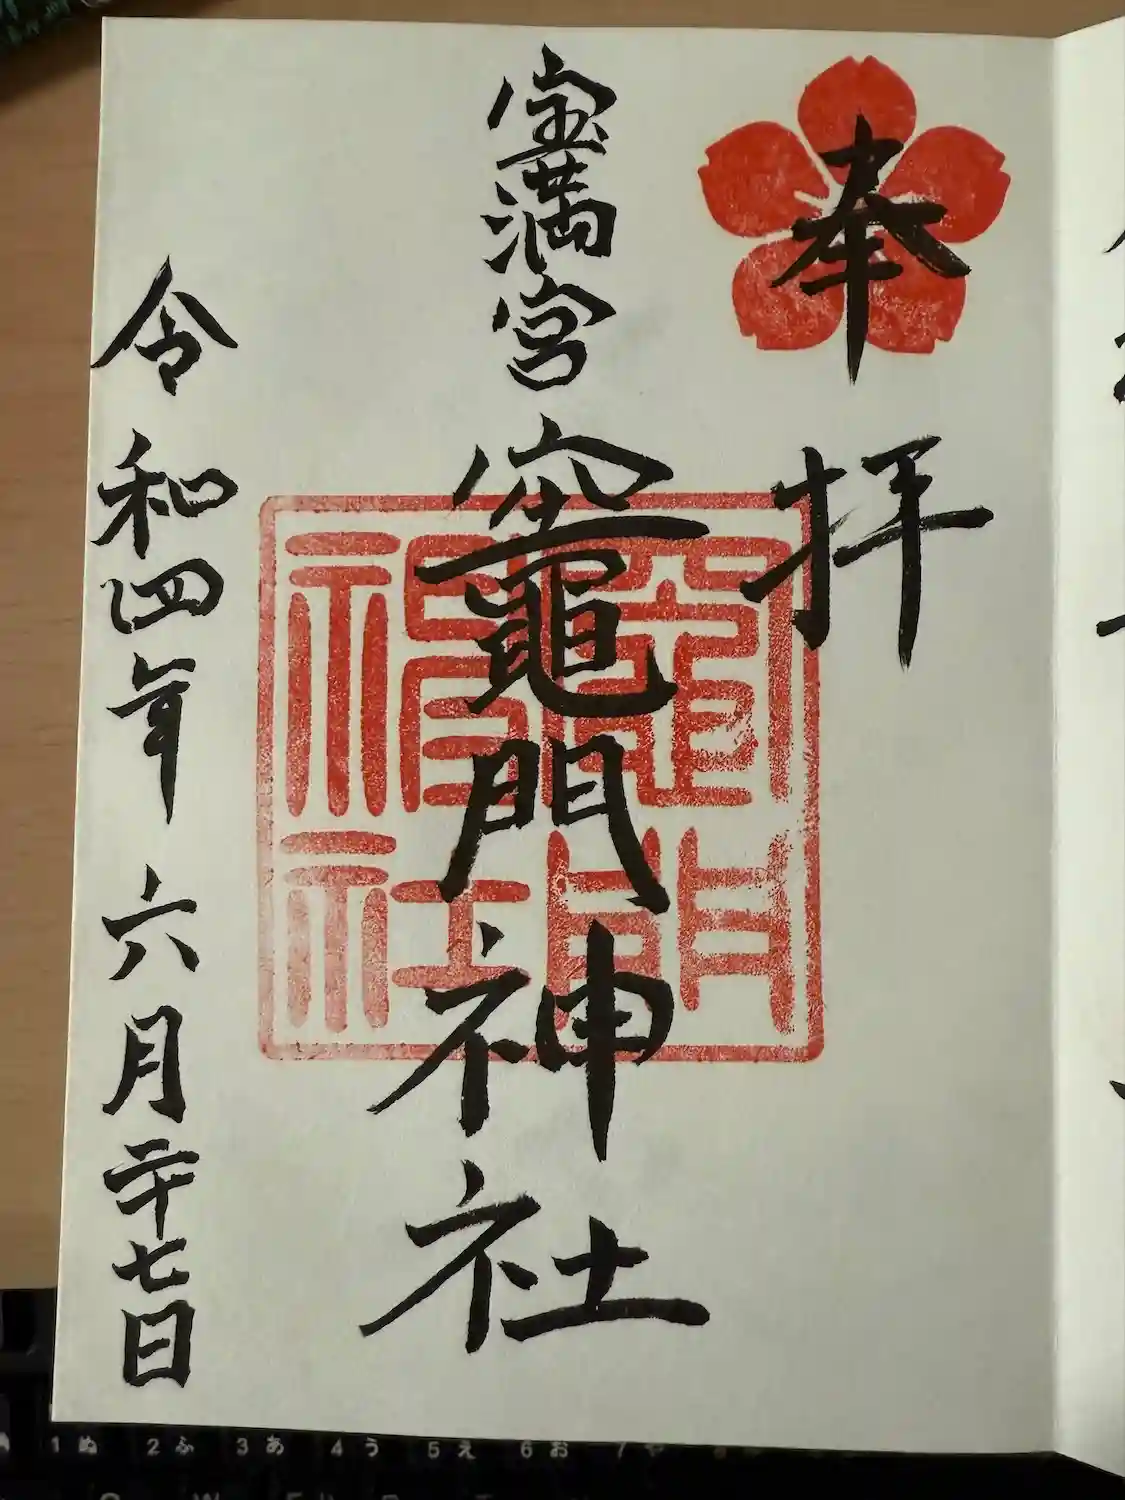 奉拝
宝満宮 竈門神社
竈門神社
令和四年六月二十七日
1ぬ 2ふ 3あ 4う 5え 6お